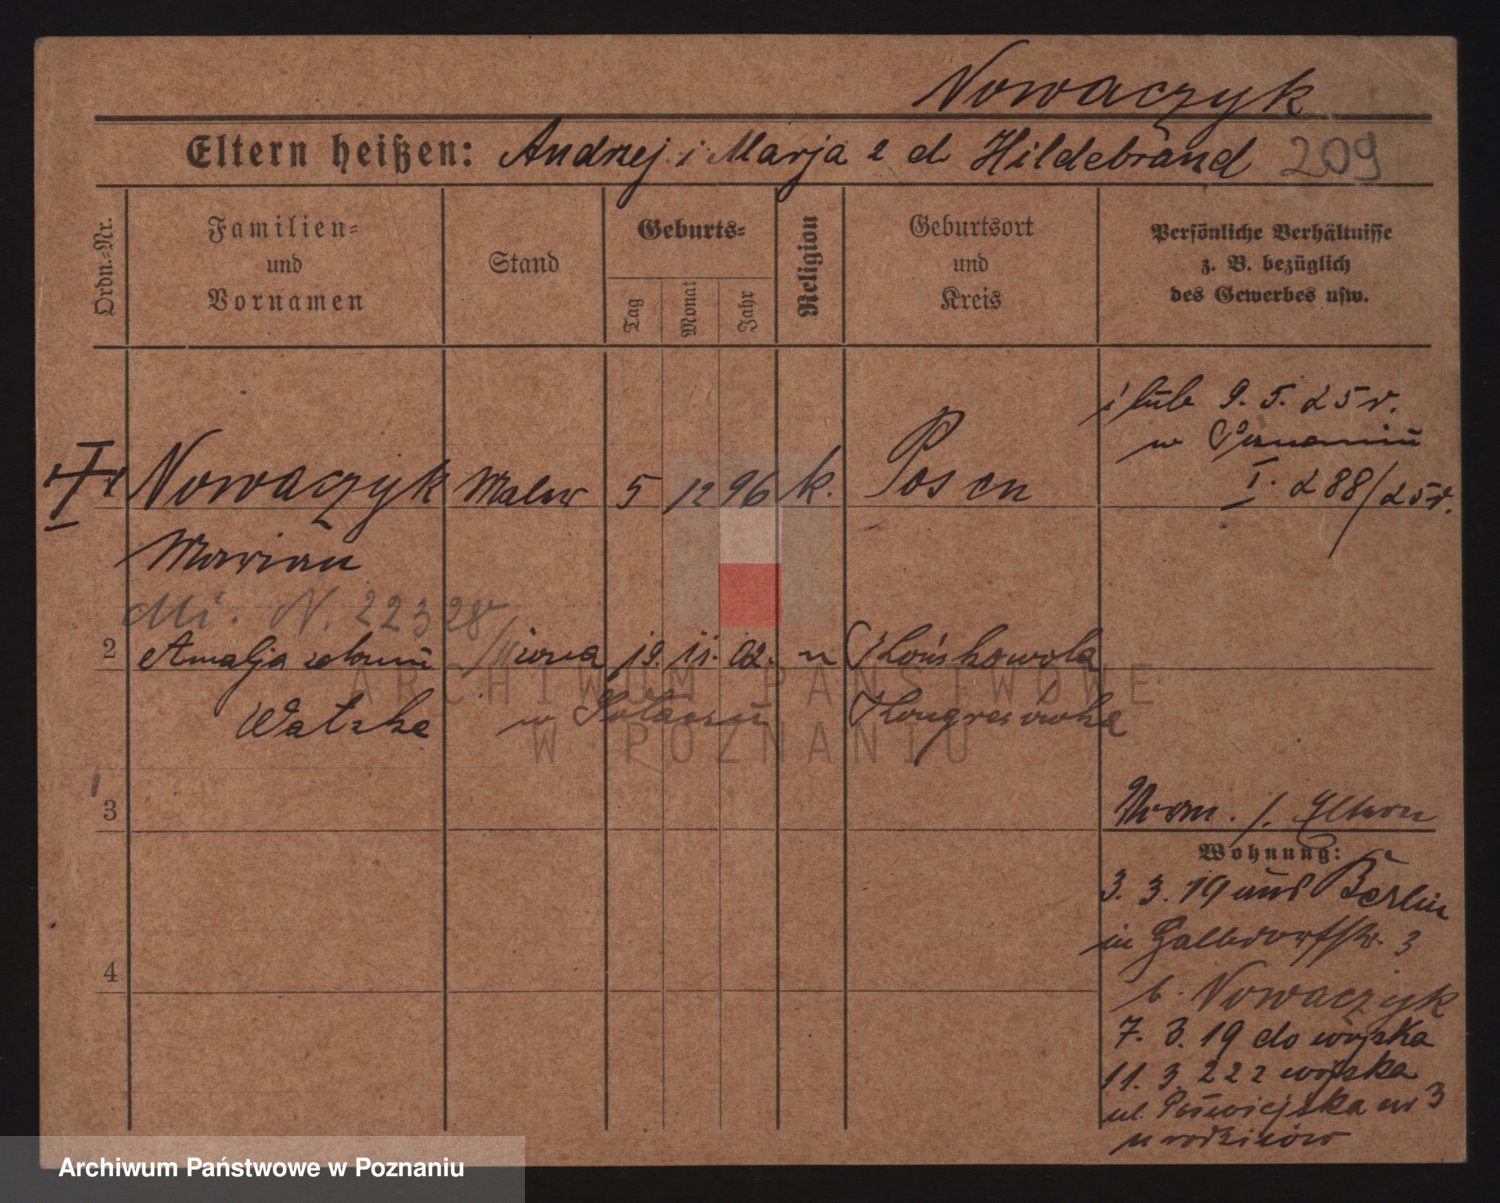 Nowaczyk
Eltern heißen: Andrzej i Marja z d Hildebrand 209
Ordn.-Nr.
Familien-
und
Vornamen
Stand
Geburts-
Tag
Monat
Jahr
Religion
Geburtsort
und
Kreis
Persönliche Verhältnisse
z. B. bezüglich
des Gewerbes usw.
ślub 9. 5. 25 r.
w Poznaniu
I. 288/25r.
Nowaczyk Maler 5 12 96 k. Posen
Marian
N. 22328
2 Amalja z domu 19. 11. 02. "
Watzke w Kongresówka
3
Eltern
Wohnung:
3. 3. 19 aus Berlin
in 3
b. Nowaczyk
4
7. 3. 19 do wojska
11. 3. 22 z wojska
ul nr 3
u rodziców
ARCHIWUM PAŃSTWOWE
W POZNANIU
Archiwum Państwowe w Poznaniu